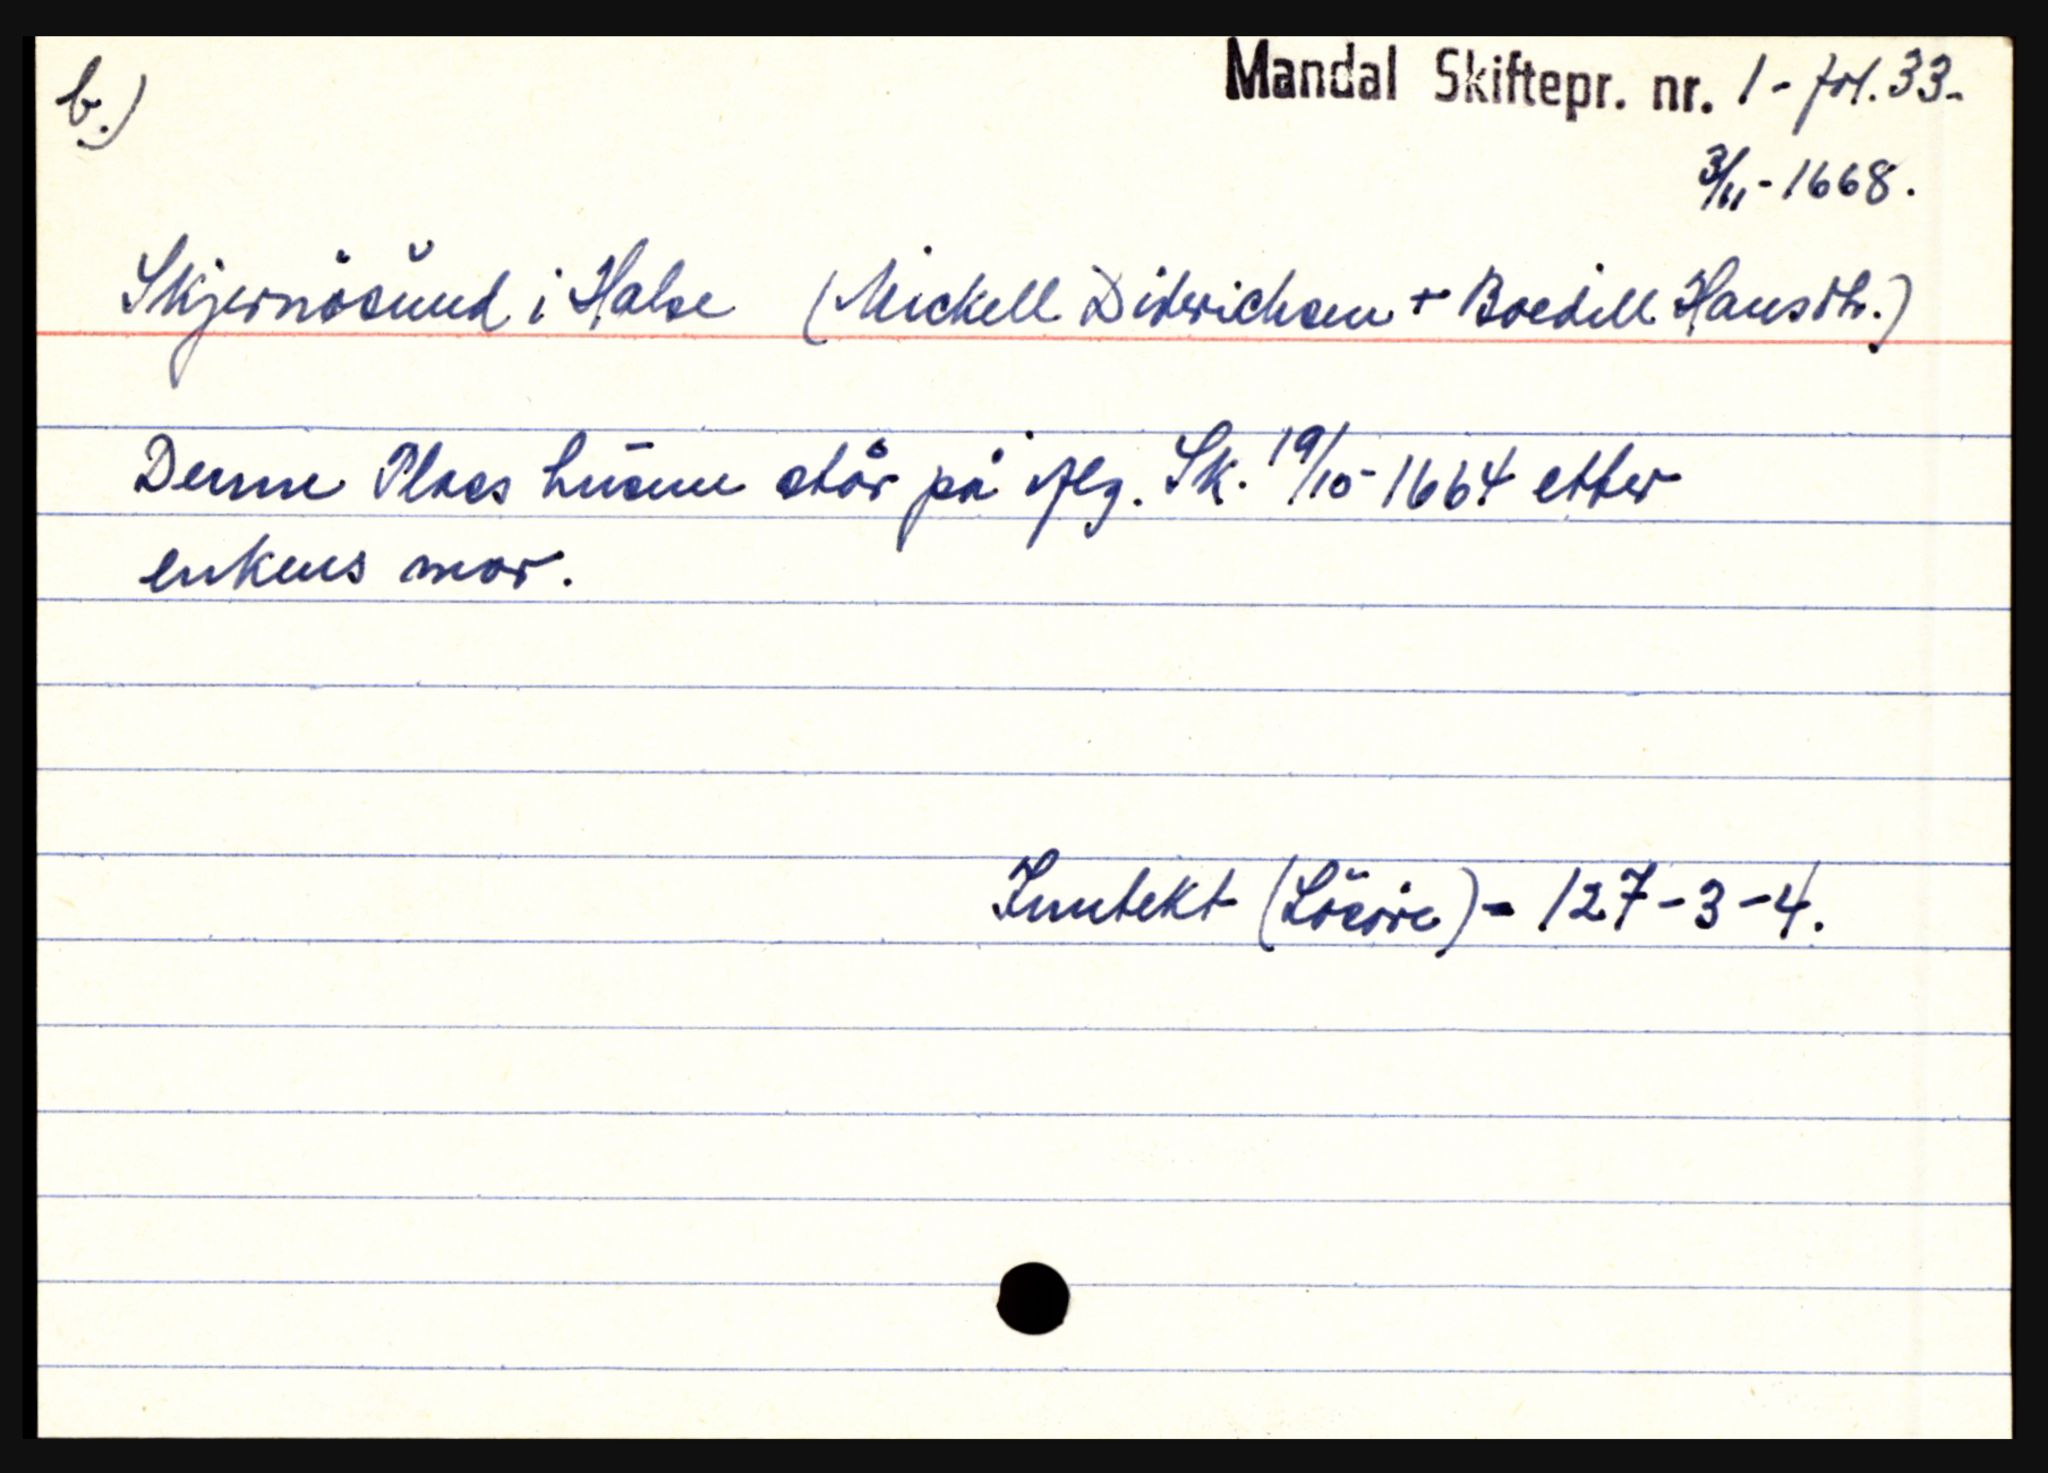 b.)
Mandal Skiftepr. nr. 1 - fol. 33.-
3/11 - 1668.
Skjernøsund i Halse (Mickell Didrichsen + Boedill Hansdtr.)
Denne Plads husene står på iflg. Sk. 19/10 - 1664 etter
enkens mor.
Inntekt (Løsøre) - 127 - 3 - 4.